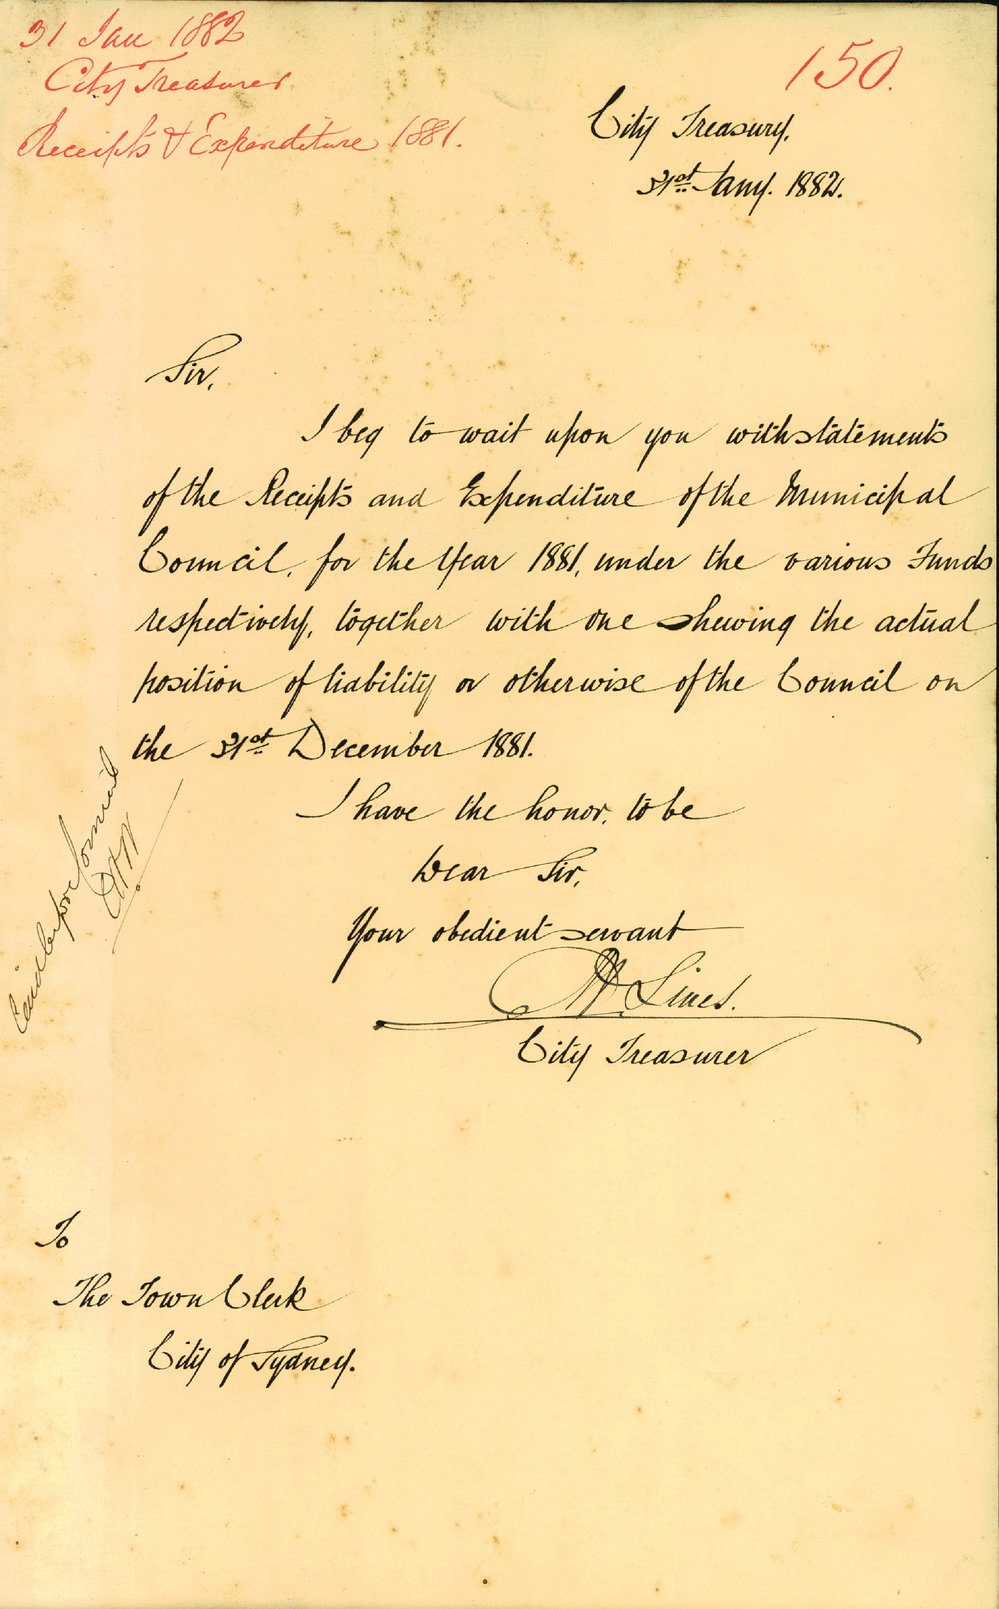 31 Jan 1882
City Treasurer
Receipts & Expenditure 1881.
150.
City Treasury.
31st Jany. 1882.
Sir,
I beg to wait upon you with statements
of the Receipts and Expenditure of the Municipal
Council, for the Year 1881, under the various Funds
respectively, together with one shewing the actual
position of liability or otherwise of the Council on
the 31st December 1881.
I have the honor, to be
Dear Sir,
Your obedient servant
Lines.
City Treasurer
Laid before Council
To
The Town Clerk
City of Sydney.